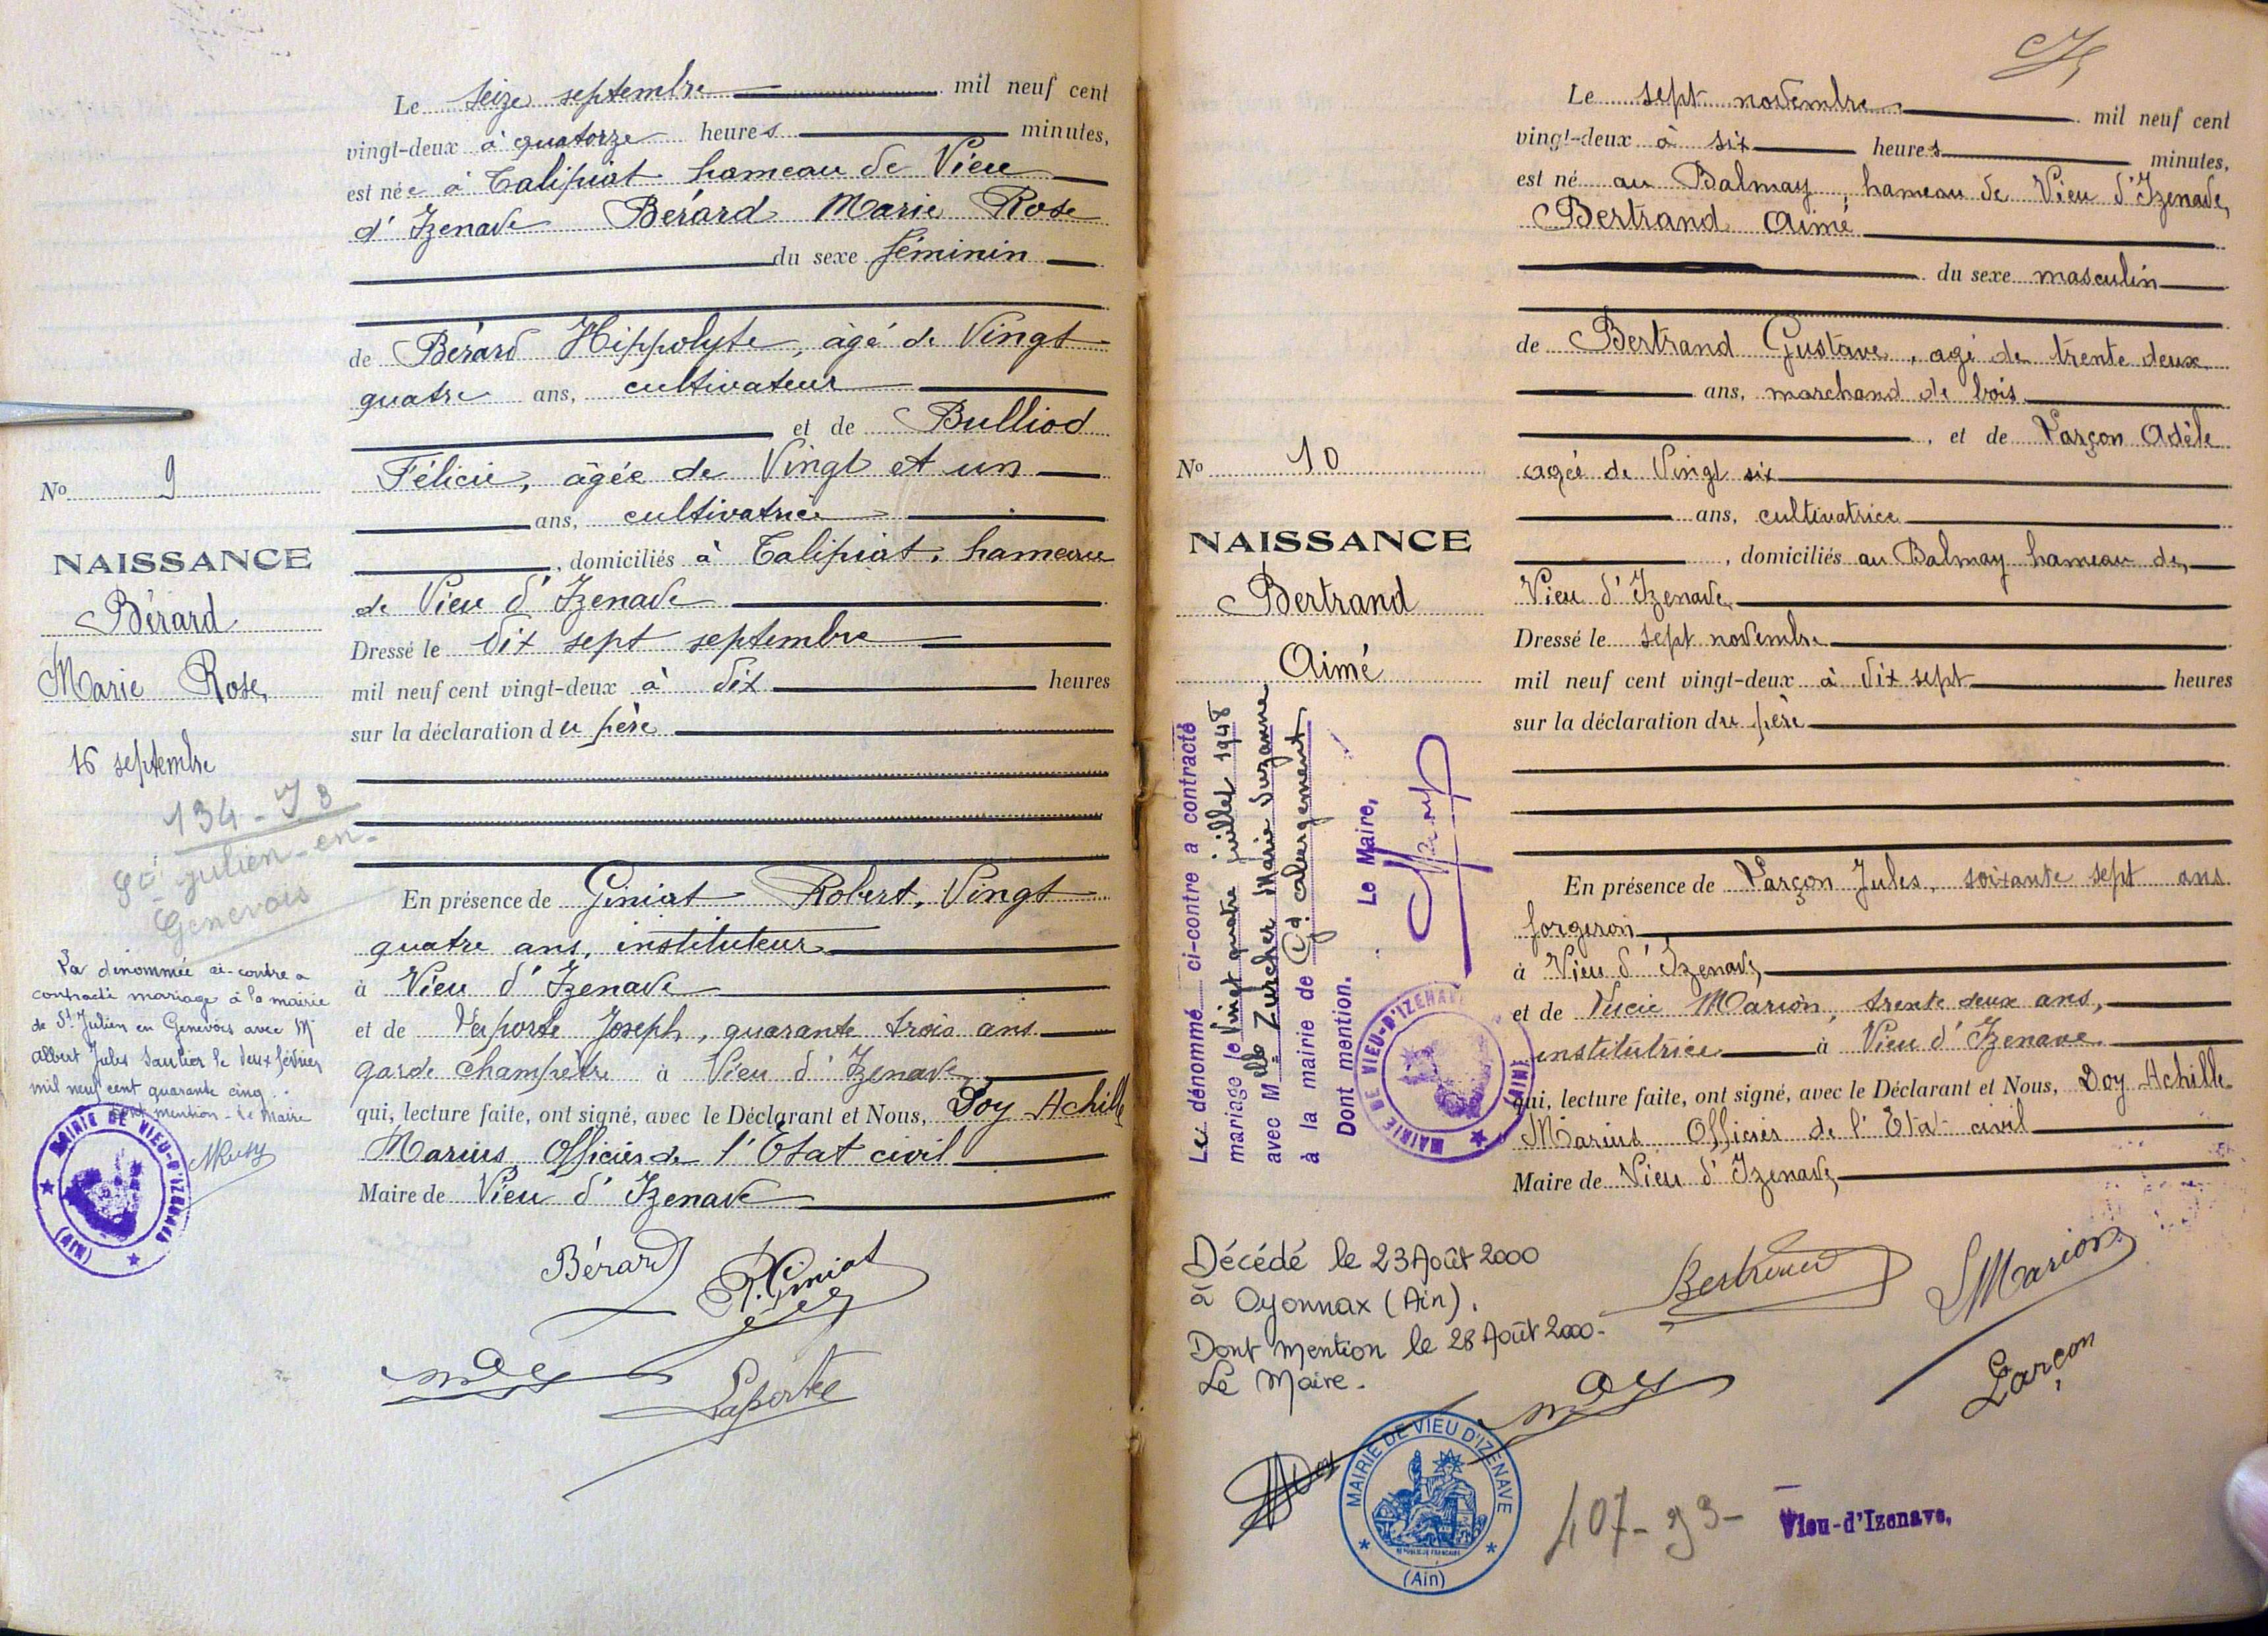 Le seize septembre mil neuf cent
vingt-deux à quatorze heures minutes,
est née à Talipiat hameau de Vieu
d'Izenave Bérard Marie Rose
du sexe féminin
de Bérard Hippolyte, âgé de Vingt
quatre ans, cultivateur
et de Bulliod
Félicie, âgée de Vingt et un
ans, cultivatrice
, domiciliés à Talipiat, hameau
de Vieu d'Izenave
Dressé le dix sept septembre
mil neuf cent vingt-deux à dix heures
sur la déclaration du père
En présence de Giniat Robert, Vingt
quatre ans, instituteur
à Vieu d'Izenave
et de Laporte Joseph, quarante trois ans
garde champêtre à Vieu d'Izenave
qui, lecture faite, ont signé, avec le Déclarant et Nous, Doy Achille
Marius Officier de l'Etat civil
Maire de Vieu d'Izenave
Bérard
R. Giniat
Laporte
No 9
NAISSANCE
Bérard
Marie Rose
16 septembre
134-
St Julien-en-
Genevois
La dénommée ci-contre a
contracté mariage à la mairie
de St Julien en Genevois avec Mr
Albert Jules Saultier le deux février
mil neuf cent quarante cinq.
Dont mention - Le Maire
MAIRIE DE VIEU-D'IZENAVE
(AIN)
Le sept novembre mil neuf cent
vingt-deux à six heures minutes,
est né au Balmay, hameau de Vieu d'Izenave,
Bertrand Aimé
du sexe masculin
de Bertrand Gustave, agé de trente deux
ans, marchand de bois
, et de Larçon Adèle
agée de Vingt six
ans, cultivatrice
, domiciliés au Balmay hameau de
Vieu d'Izenave
Dressé le sept novembre
mil neuf cent vingt-deux à dix sept heures
sur la déclaration du père
En présence de Larçon Jules, soixante sept ans
forgeron
à Vieu d'Izenave
et de Lucie Marion, trente deux ans,
institutrice à Vieu d'Izenave
qui, lecture faite, ont signé, avec le Déclarant et Nous, Doy Achille
Marius Officier de l'Etat civil
Maire de Vieu d'Izenave
Bertrand
LMarion
Larçon
No 10
NAISSANCE
Bertrand
Aimé
Le dénommé ci-contre a contracté
mariage le Vingt quatre juillet 1948
avec Melle Zurcher Marie Suzanne
à la mairie de Gd Abergement
Dont mention.
Le Maire,
MAIRIE DE VIEU-D'IZENAVE
(AIN)
Décédé le 23 Août 2000
à Oyonnax (Ain).
Dont Mention le 28 Août 2000.
Le Maire.
MAIRIE DE VIEU D'IZENAVE
RÉPUBLIQUE FRANÇAISE
(Ain)
107-93-
Vieu-d'Izenave.